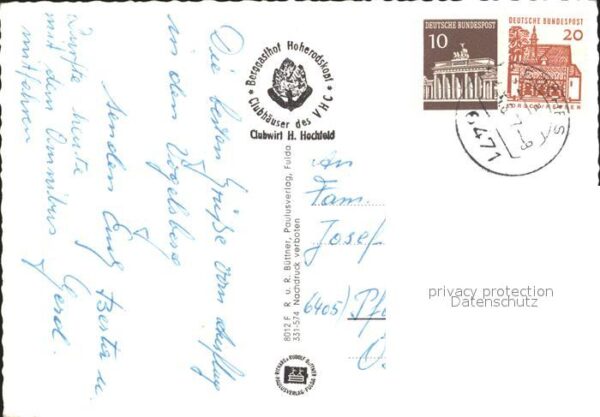 Die besten Grüße vom Ausflug
in den Vogelsberg
senden Euch Berta u.
Gerd.
Durfte heute
mit dem Omnibus
mitfahren
Berggasthof Hoherodskopf
Clubhäuser des VHC
Clubwirt H. Hochfeld
8012 F R. u. R. Büttner, Paulusverlag, Fulda
331-574 Nachdruck verboten
DEUTSCHE BUNDESPOST
10
DEUTSCHE BUNDESPOST
20
6471
An
Fam.
Josef
6405
privacy protection
Datenschutz